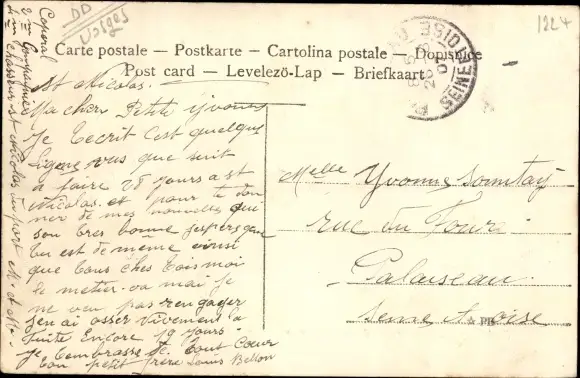 DD
Vosges
1224
Carte postale — Postkarte — Cartolina postale — Dopisnice
Post card — Levelező-Lap — Briefkaart
SEINE
Caporal
2me Compagnie
4me chasseur St Nicolas du port M. et Mlle
St Nicolas.
Ma cher Petite Yvonne
Je t'ecrit c'est quelque
ligne vous que suit
a faire 28 yours a st
Nicolas. et pour te don
ner de mes nouvelles qui
son tres bonne jespers que
tu est de même ainsi
que tous ches tois moi
le metier va mai je
ne veu pas rengager
jen ai asser vivement la
fuite Encore 19 yours
Je t'embrasse de tout Cœur
ton petit frère Louis
Melle Yvonne
rue du Four
Palaiseau.
Seine & Oise